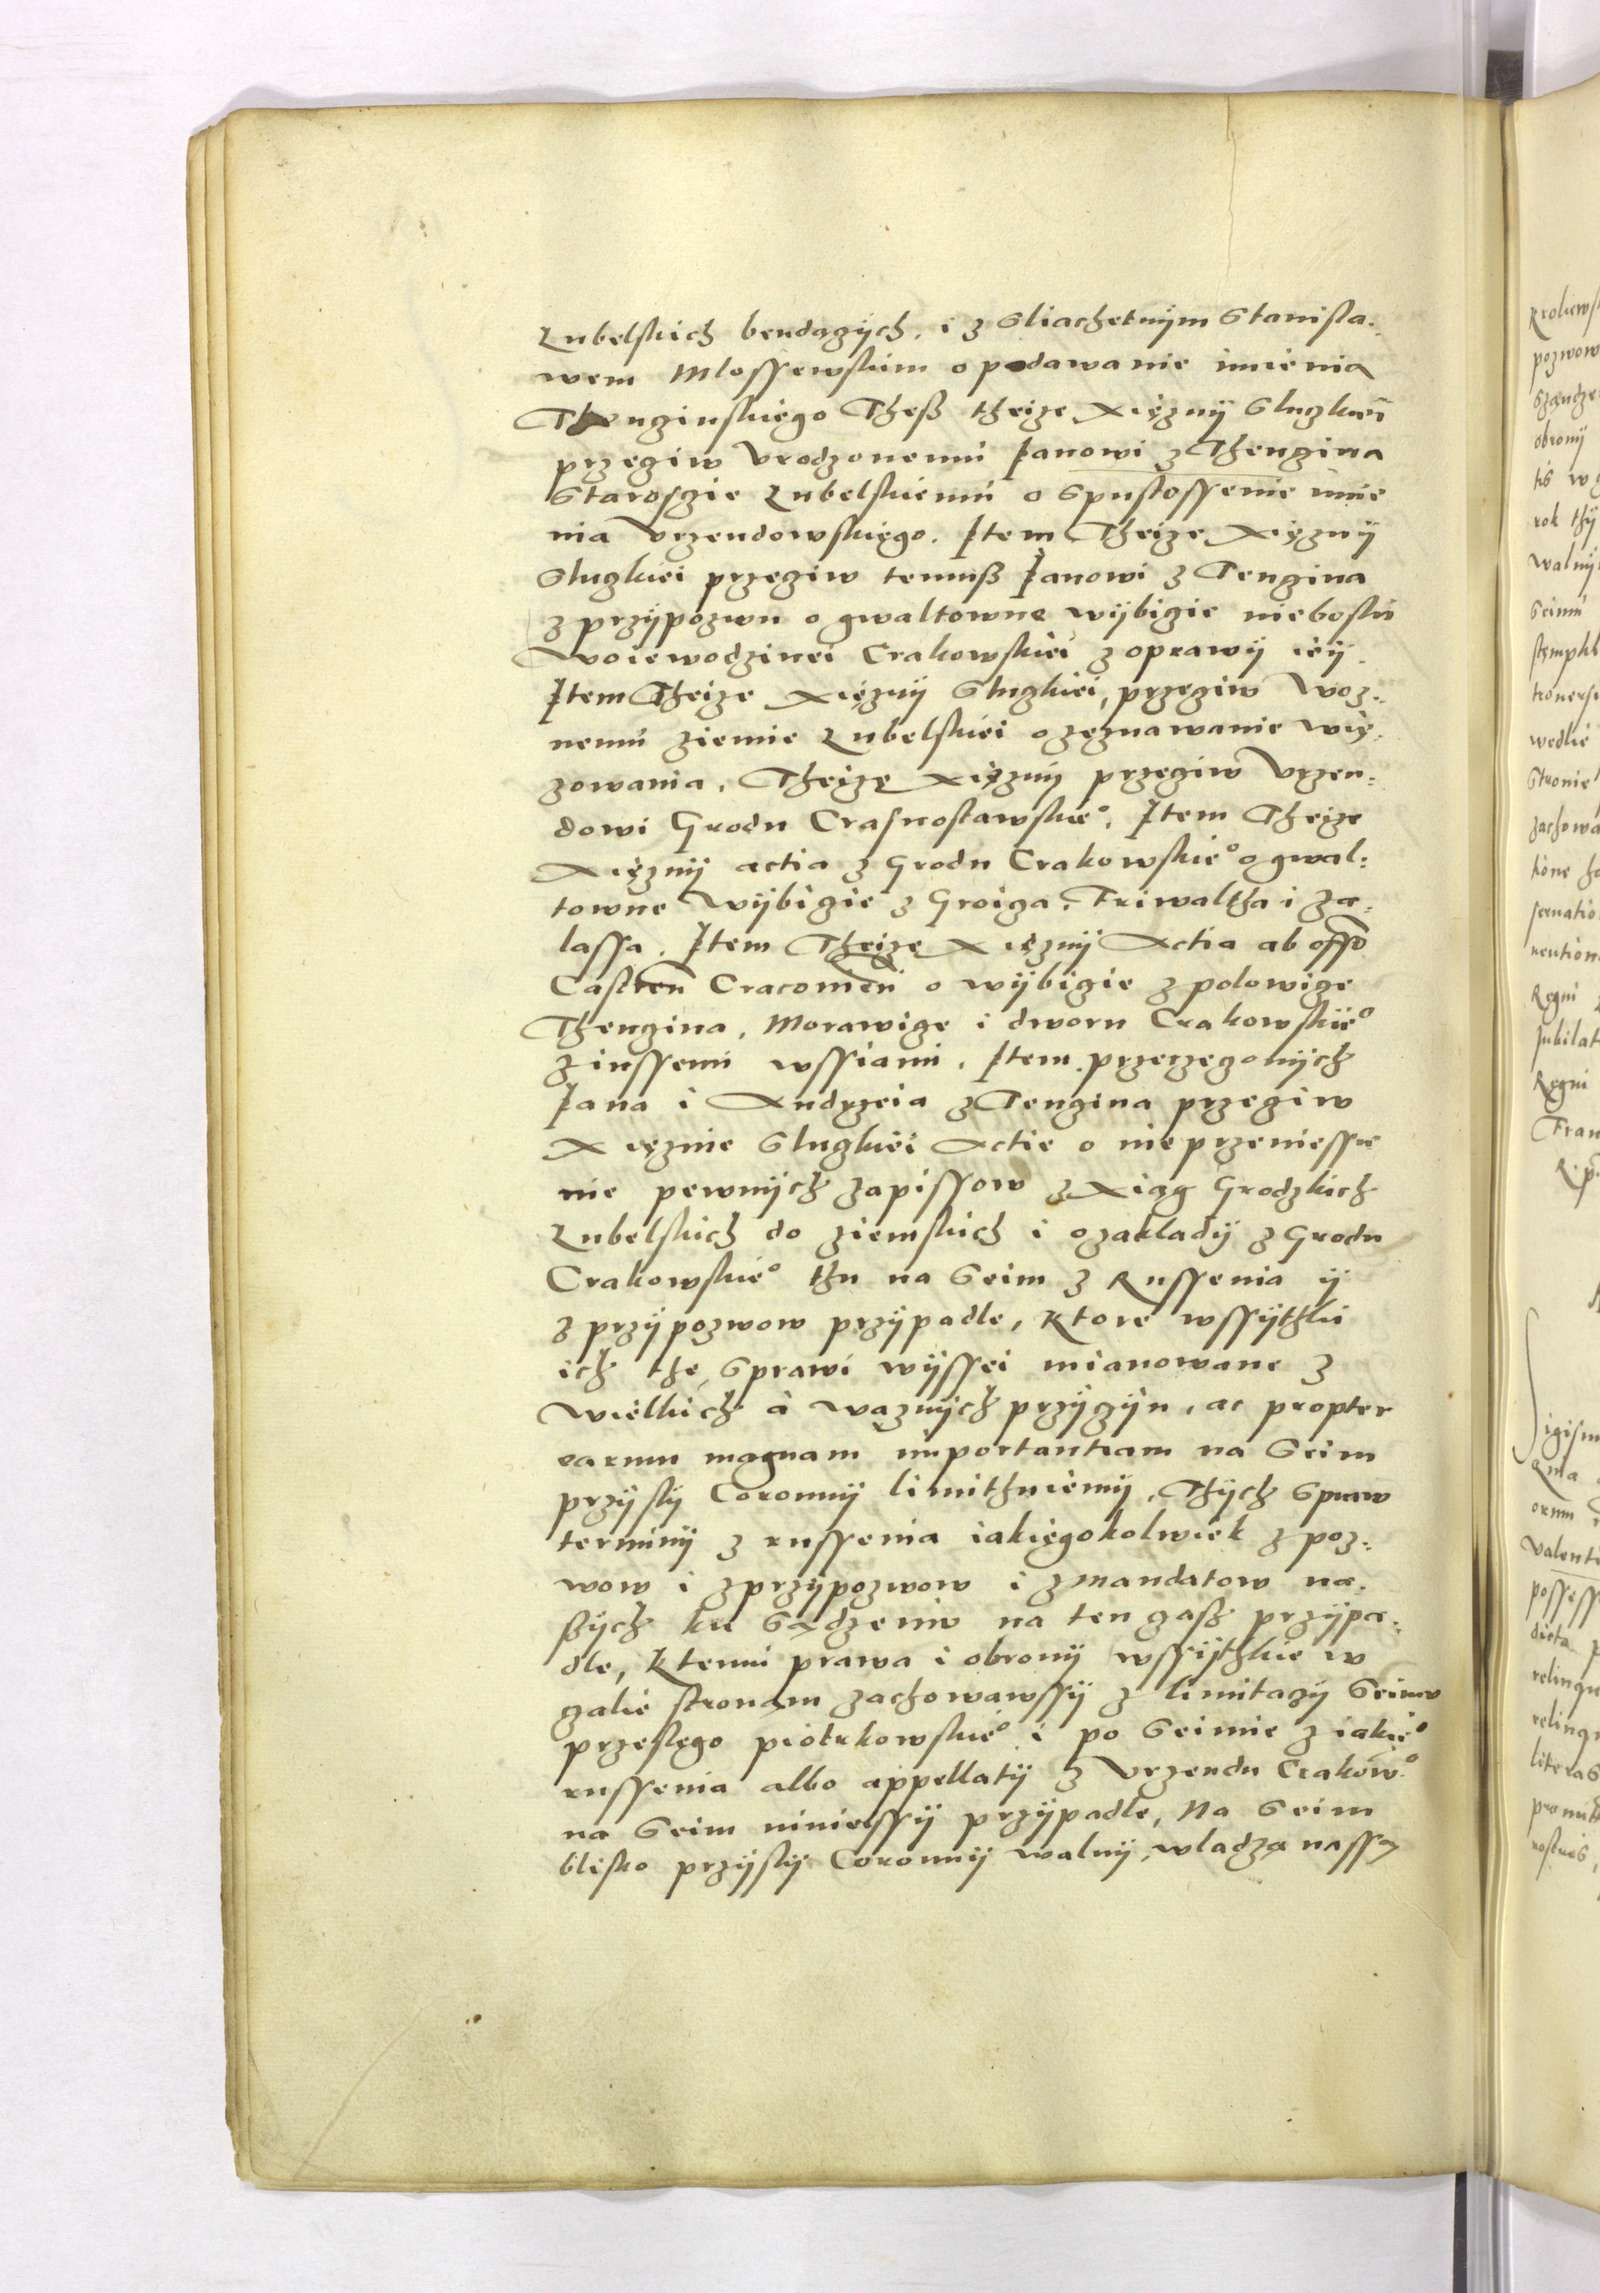 Lubelskich bendagÿch, i z Sliachetnÿm Stanisla-
wem Mlossewskim o podawanie imienia
Thenginskiego Theß theize Xięznÿ Sluzkiei
przegiw Urodzonemu Janowi z Thengina
Starosgie Lubelskiemu o Spustossenie imie
nia Urzendowskięgo. Item Theize Xięznÿ
Slugkiei przegiw temuß Janowi z Tengina
z przÿpozwu o gwaltowne wÿbigie nieboski
Woiewodzinei Crakowskiei z oprawÿ ieÿ.
Item Theize Xięznÿ Slugkiei, przegiw Woz-
nemu ziemie Lubelskiei o zęznawanie wię-
zowania. Theizę Xięznÿ przegiw Vrzen-
dowi Grodu Crasnostawskie°. Item Theize
Xięznÿ actia z Grodu Crakowskie° o gwal-
towne wÿbigie z Groiga, Friwaltha i Za-
lassa. Item Theizę Xięznÿ Actia ab offo
Castren Cracovien o wÿbigie z polowige
Thengina, Morawige i dworu Crakowskie°
z inssemi wssiami. Item przerzegonÿch
Jana i Andrzeia z Tengina przegiw
Xięznie Slugkiei Actie o nieprzeniesse
nie pewnÿch zapissow z Xiąg Grodzkich
Lubelskich do ziemskich i o zakladÿ z Grodu
Crakowskie° thu na Seim z Russenia ÿ
z przÿpozwow przÿpadle, Ktore wssÿthki
ich the Sprawi wÿssei mianowane z
wielkich à wąznÿch przÿgÿn, ac propter
earum magnam importantiam na Seim
przÿslÿ Coronnÿ limithuiemÿ, Thÿch Spraw
terminÿ z russenia iakięgokolwiek z poz-
wow i z przÿpozwow i z mandatow na-
ßÿch ku Sądzeniu na ten gaß przÿpa-
dle, Ktemu prawa i obronÿ wssÿthkie w
galie stronam zachowawssÿ z limitagÿ Seimu
przeslęgo piotrkowskie° i po Seimie z iakie°
russenia albo appellatÿ z Vrzendu Crakow°
na Seim niniessÿ przÿpadle, Na Seim
blisko przÿslÿ Coronnÿ walnÿ, wladzą nassą